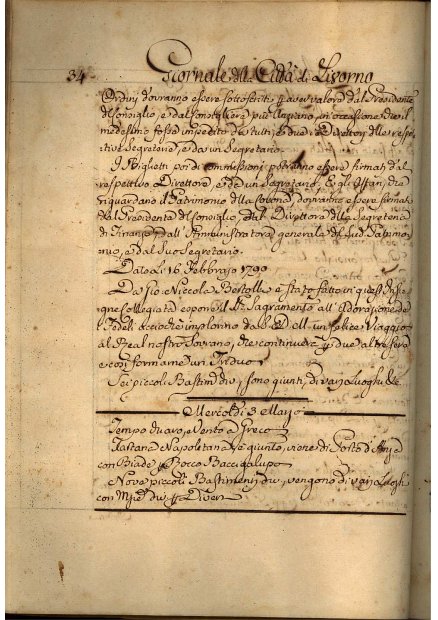 34
Giornale della Città di Livorno
Ordini dovranno essere sottoscritti p aver valore dal Presidente
di Consiglio, e dal Consigliere più Anziano, in occasione che il
medesimo fosse impedito da tutti, e due i Direttori delle respe-
ttive Segreterie, e da un Segretario.
I Biglietti poi di commissioni potranno essere firmati dal
respettivo Direttore, e da un Segretario, E gli Affari, che
riguardano il Patrimonio della Corona, dovranno essere firmati
dal Presidente di Consiglio, dal Direttore della Segreteria
di Finanze, dall' Amministratore generale di Sud. Patrimo-
nio, e dal Suo Segretario.
Dato Li 16 Febbrajo 1799
Da Sig. Niccola Bertolli è stato fatto in questa Insi-
gne Collegiata esporre il SS. Sagramento all' Adorazione de
Fedeli acciochè implorino da S. D. M. un felice Viaggio
al Real nostro Sovrano, che continuerà p due altre sere
e così formarne un Triduo
Sei piccoli Bastim. div. sono giunti, di varj Luoghi &c
Mercoldi 3 Marzo
Tempo Vento a Greco
Tartana Napoletana è giunto, viene di Porto d'Anzo
con Biade p Rocco Baccigalupo
Nove piccoli Bastimenti div. vengono di varj Luoghi
con div. p Diversi